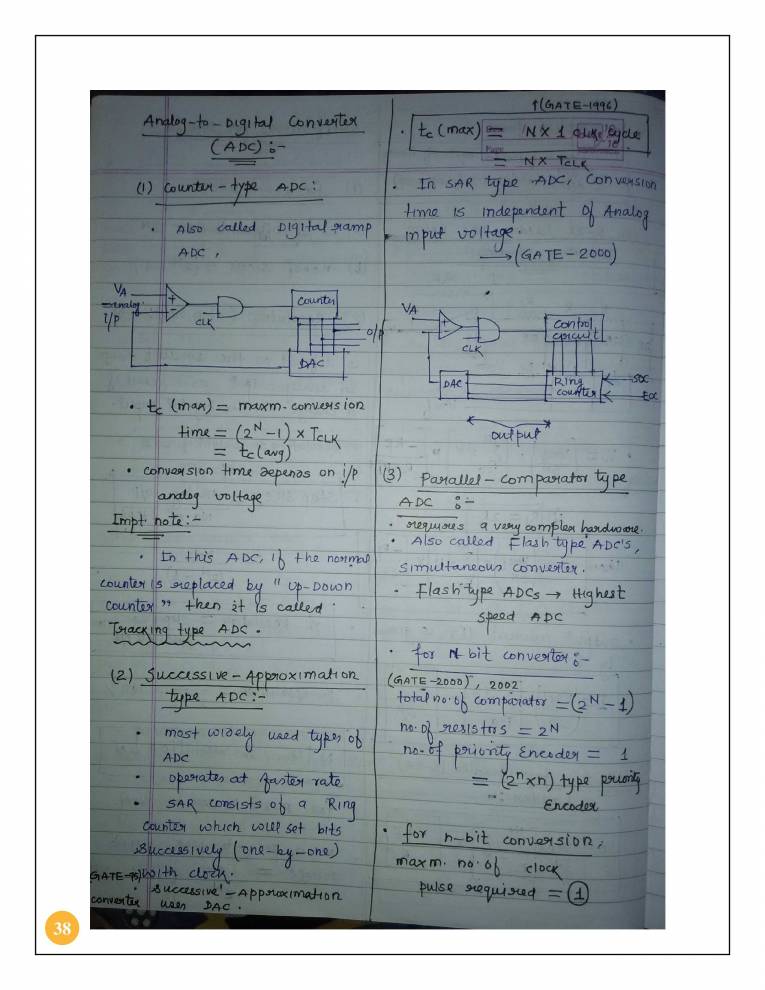 Analog-to-Digital Converter
(ADC) :-
(1) Counter-type ADC :
• Also called Digital ramp
ADC,
VA
analog
I/P
+
-
CLK
Counter
O/P
DAC
• tc (max) = maxm. conversion
time = (2^N - 1) × TCLK
= tc (avg)
• conversion time depends on i/p
analog voltage
Impt note :-
• In this ADC, if the normal
counter is replaced by "Up-Down
counter" then it is called
Tracking type ADC.
(2) Successive-Approximation
type ADC :-
• most widely used types of
ADC
• operates at faster rate
• SAR consists of a Ring
counter which will set bits
successively (one-by-one)
(GATE-95) with clock.
• Successive-Approximation
converter uses DAC.
↑(GATE-1996)
• tc (max) = N × 1 clk cycle
= N × TCLK
• In SAR type ADC, conversion
time is independent of Analog
input voltage.
→ (GATE-2000)
VA
+
-
CLK
control
circuit
DAC
Ring
counter
SOC
EOC
output
(3) Parallel-comparator type
ADC :-
• requires a very complex hardware.
• Also called Flash type ADC's,
simultaneous converter.
• Flash type ADCs → Highest
speed ADC
• for N bit converter :-
(GATE-2000), 2002
total no. of comparator = (2^N - 1)
no. of resistors = 2^N
no. of priority Encoder = 1
= (2^n × n) type priority
Encoder
• for n-bit conversion,
maxm. no. of clock
pulse required = 1
38